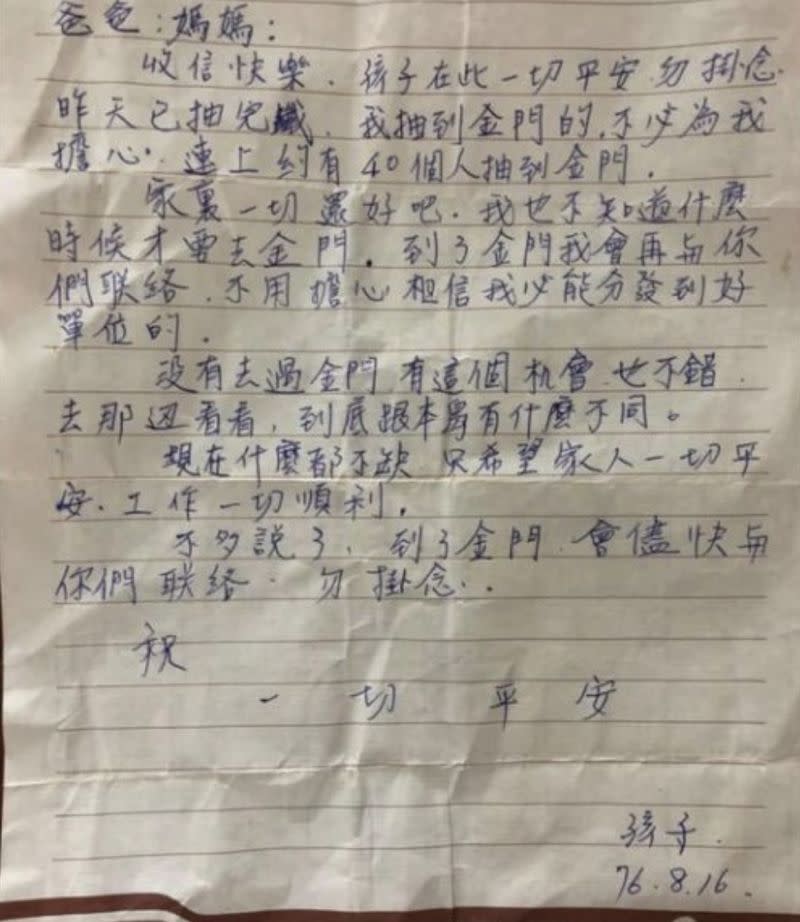 爸爸:媽媽:
收信快樂.孩子在此一切平安.勿掛念.
昨天已抽完籤.我抽到金門的.不必為我
擔心.連上約有40個人抽到金門.
家裏一切還好吧.我也不知道什麼
時候才要去金門.到了金門我會再与你
們联絡.不用擔心相信我必能分發到好
單位的.
没有去過金門 有這個机會.也不錯.
去那边看看,到底跟本島有什麼不同。
現在什麼都不缺 只希望家人一切平
安.工作一切順利.
不多說了.到了金門.會儘快与
你們联絡.勿掛念..
祝
一切平安
孩子.
76.8.16.